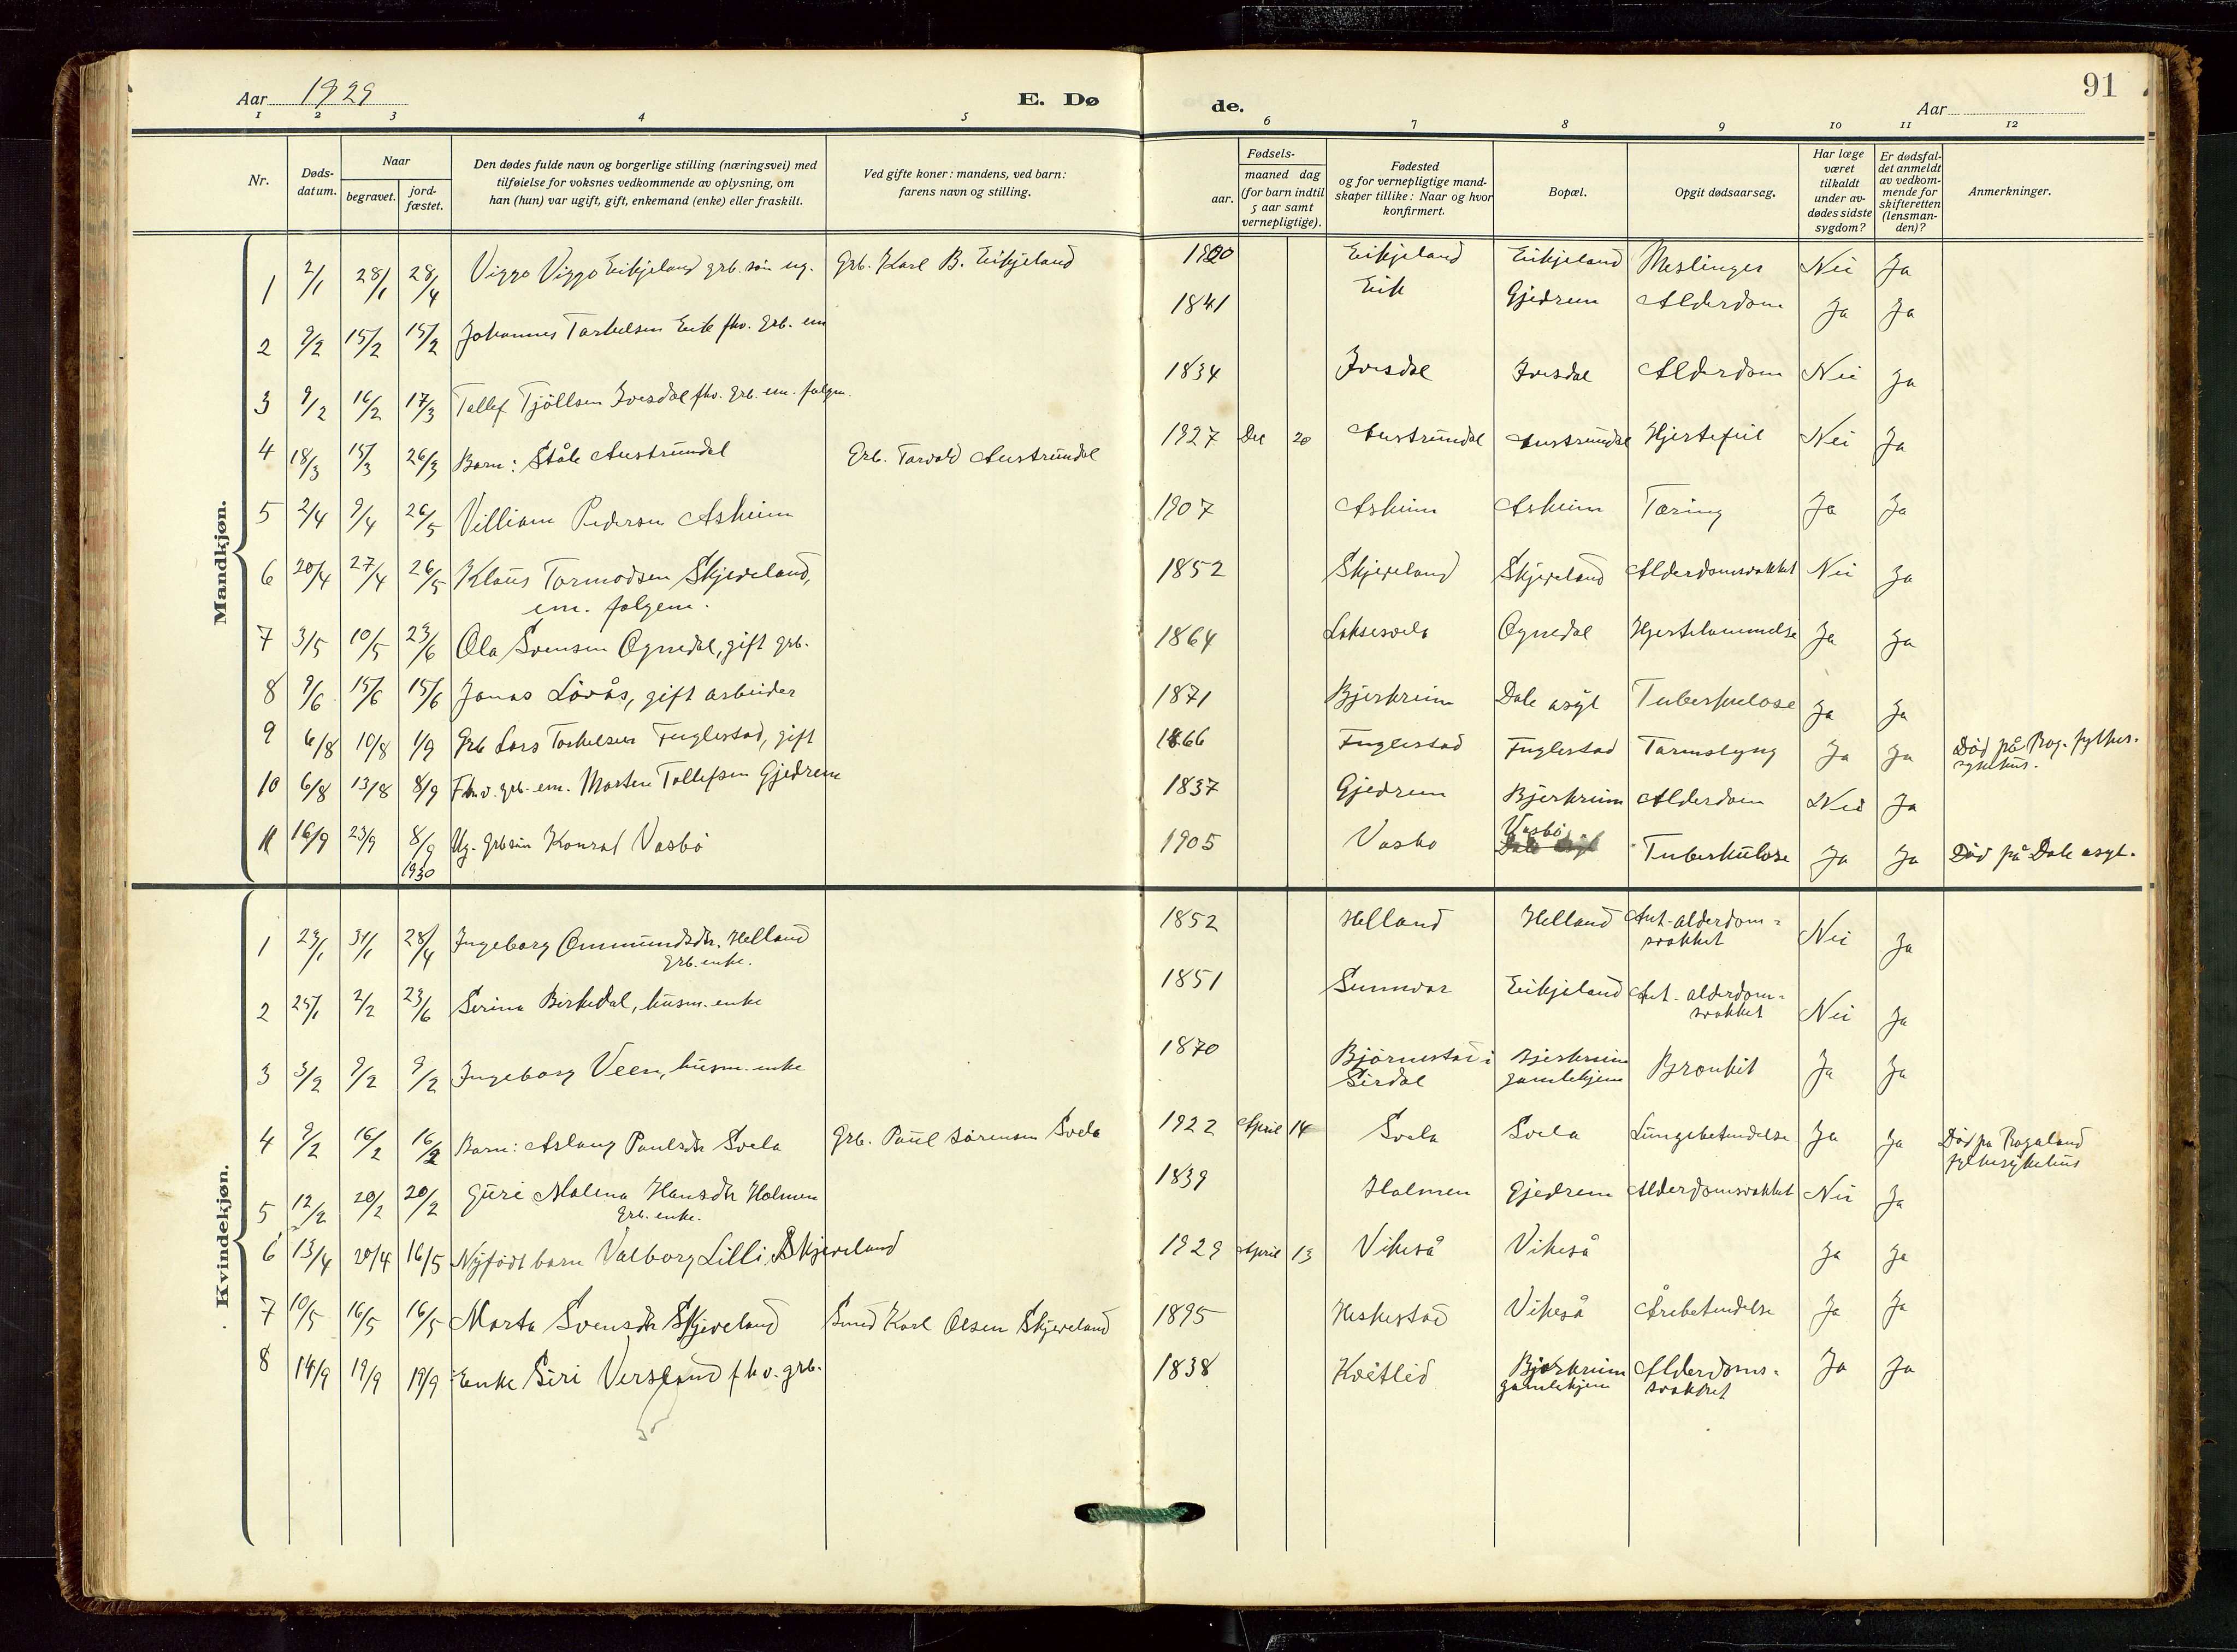 Aar 1929
E. Dø
de.
Aar
91
1 2 3 4 5 6 7 8 9 10 11 12
Nr.
Døds-
datum.
Naar
begravet.
jord-
fæstet.
Den dødes fulde navn og borgerlige stilling (næringsvei) med
tilføielse for voksnes vedkommende av oplysning, om
han (hun) var ugift, gift, enkemand (enke) eller fraskilt.
Ved gifte koner: mandens, ved barn:
farens navn og stilling.
Fødsels-
aar.
maaned dag
(for barn indtil
5 aar samt
vernepligtige).
Fødested
og for vernepligtige mand-
skaper tillike: Naar og hvor
konfirmert.
Bopæl.
Opgit dødsaarsag.
Har læge
været
tilkaldt
under av-
dødes sidste
sygdom?
Er dødsfal-
det anmeldt
av vedkom-
mende for
skifteretten
(lensman-
den)?
Anmerkninger.
Mandkjøn.
1 2/1 28/1 28/4 Viggo Viggo Eikjeland grb. søn ug. Grb. Karl B. Eikjeland 1920 Eikjeland Eikjeland Meslinger Nei Ja
2 9/2 15/2 15/2 Johannes Tarkelsen Eik fhv. grb. em 1841 Eik Gjedrem Alderdom Ja Ja
3 9/2 16/2 17/3 Tallef Tjöllsen Ivesdal fhv. grb. em. folgem. 1834 Ivesdal Ivesdal Alderdom Nei Ja
4 18/3 15/3 26/3 Barn: Ståle Austrumdal Grb. Torvald Austrumdal 1927 Des 20 Austrumdal Austrumdal Hjertefeil Nei Ja
5 2/4 9/4 26/5 Villiam Pedersen Asheim 1907 Asheim Asheim Tæring Ja Ja
6 20/4 27/4 26/5 Klaus Tormodsen Skjeveland, 1852 Skjeveland Skjeveland Alderdomsvakhet Nei Ja
em. folgem.
7 3/5 10/5 23/6 Ola Svensen Ognedal, gift grb. 1864 Laksesvela Ognedal Hjertelammelse Ja Ja
8 9/6 15/6 15/6 Jonas Lövås, gift arbeider 1871 Bjerkreim Dale asyl Tuberkulose Ja Ja
9 6/8 10/8 1/9 Grb Lars Torkelsen Fuglestad, gift 1866 Fuglestad Fuglestad Tarmslyng Ja Ja Död på Rog. fylkes-
sykehus.
10 6/8 13/8 8/9 Fhv. grb. em. Morten Tollefsen Gjedrem 1837 Gjedrem Bjerkreim Alderdom Nei Ja
11 16/9 23/9 8/9 1930 Ug. grb sön Konrad Vasbö 1905 Vasbo Vasbö Dale asyl Tuberkulose Ja Ja Död på Dale asyl.
Kvindekjøn.
1 23/1 31/1 28/4 Ingeborg Ommundsdtr. Helland 1852 Helland Helland Ant. alderdom= Nei Ja
grb. enke.
svakhet
2 25/1 2/2 23/6 Serina Birkedal, husm. enke 1851 Sunnvor Eikjeland Ant. alderdom= Nei Ja
svakhet
3 3/2 9/2 9/2 Ingeborg Veen, husm. enke 1870 Björnestad i Bjerkreim Bronkit Ja Ja
Sirdal gamlehjem
4 9/2 16/2 16/2 Barn: Aslaug Paulsdtr Svela Grb. Paul Sörensen Svela 1922 April 14 Svela Svela Lungebetendelse Ja Ja Död på Rogaland
fylkesykehus
5 12/2 20/2 20/2 Guri Malena Hansdtr Holmen 1839 Holmen Gjedrem Alderdomsvakhet Nei Ja
Grb. enke.
6 13/4 20/4 16/5 Nyfödt barn Valborg Lilli Skjeveland 1929 April 13 Vikeså Vikeså Ja Ja
7 10/5 16/5 16/5 Marta Svensdtr Skjeveland Smed Karl Olsen Skjeveland 1895 Heskestad Vikeså Årebetendelse Ja Ja
8 14/9 19/9 19/9 Enke Siri Versland fhv. grb. 1838 Kvitlid Bjerkreim Alderdoms= Ja Ja
gamlehjem svakhet